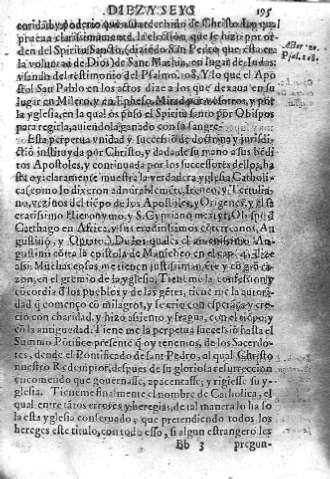 DIEZ Y SEYS
195
coridad y poderio que auia recebido de Christo. Lo qual
prueua clarissimamente la election que se hizo por or-
den del Spiritu Sancto, diziendo San Pedro que esta era
la voluntad de Dios, de Sant Mathia, en lugar de Iudas:
y usando del testimonio del Psalmo. 108. Y lo que el Apo
stol San Pablo en los actos dize a los que dexaua en su
lugar en Mileto, y en Epheso. Mirad por vosotros, y por
la yglesia, en la qual os puso el Spiritu Santo por Obispos
para regirla, auiendola ganado con su sangre.
Esta perpetua vnidad y succession de doctrina y juridi-
ction instituyda por Christo, y dada de su mano a sus bẽdi
tos Apostoles, y continuada por los successores dellos, ha
sta oy: claramente muestra la verdadera yglesia Catholi
ca, como lo dixeron admirablemẽte, Ireneo, y Tertulia
no, vezinos del tiẽpo de los Apostoles, y Origenes, y el sa
clarissimo Hieronymo, y S. Cypriano martyr, Obispo d
Carthago en Africa, y sus eruditissimos coterraneos, Au
gustino, y Optato. De los quales el
gustino cõtra la epistola de Manicheo en el cap. 4. dize
assi. Muchas cosas me tienen justissimamẽte y cõ gran ra
zon, en el gremio de la yglesia. Tieneme la confession y
cõcordia d los pueblos y de las gẽtes, tiene me la autori-
dad q començo cõ milagros, y se crio con esperãça, y cre-
cio con charidad, y hizo assiento y fragua, con el tiẽpo, y
cõ la antiguedad. Tiene me la perpetua successiõ hasta el
Summo Põtifice presente q̃ oy tenemos, de los Sacerdo-
tes, dende el Pontificado de sant Pedro, al qual Christo
nuestro Redemptor, despues de su gloriosa resurrection
encomendo que gouernasse, apacentasse, y rigiesse su y-
glesia. Tieneme finalmente el nombre de Catholica, el
qual entre tãtos errores y heregias, de tal manera lo ha so
la esta yglesia conseruado, que pretendiendo todos los
hereges este titulo, con todo esso, si algun estrangero les
Bb 3
pregun-
Psal. 108.